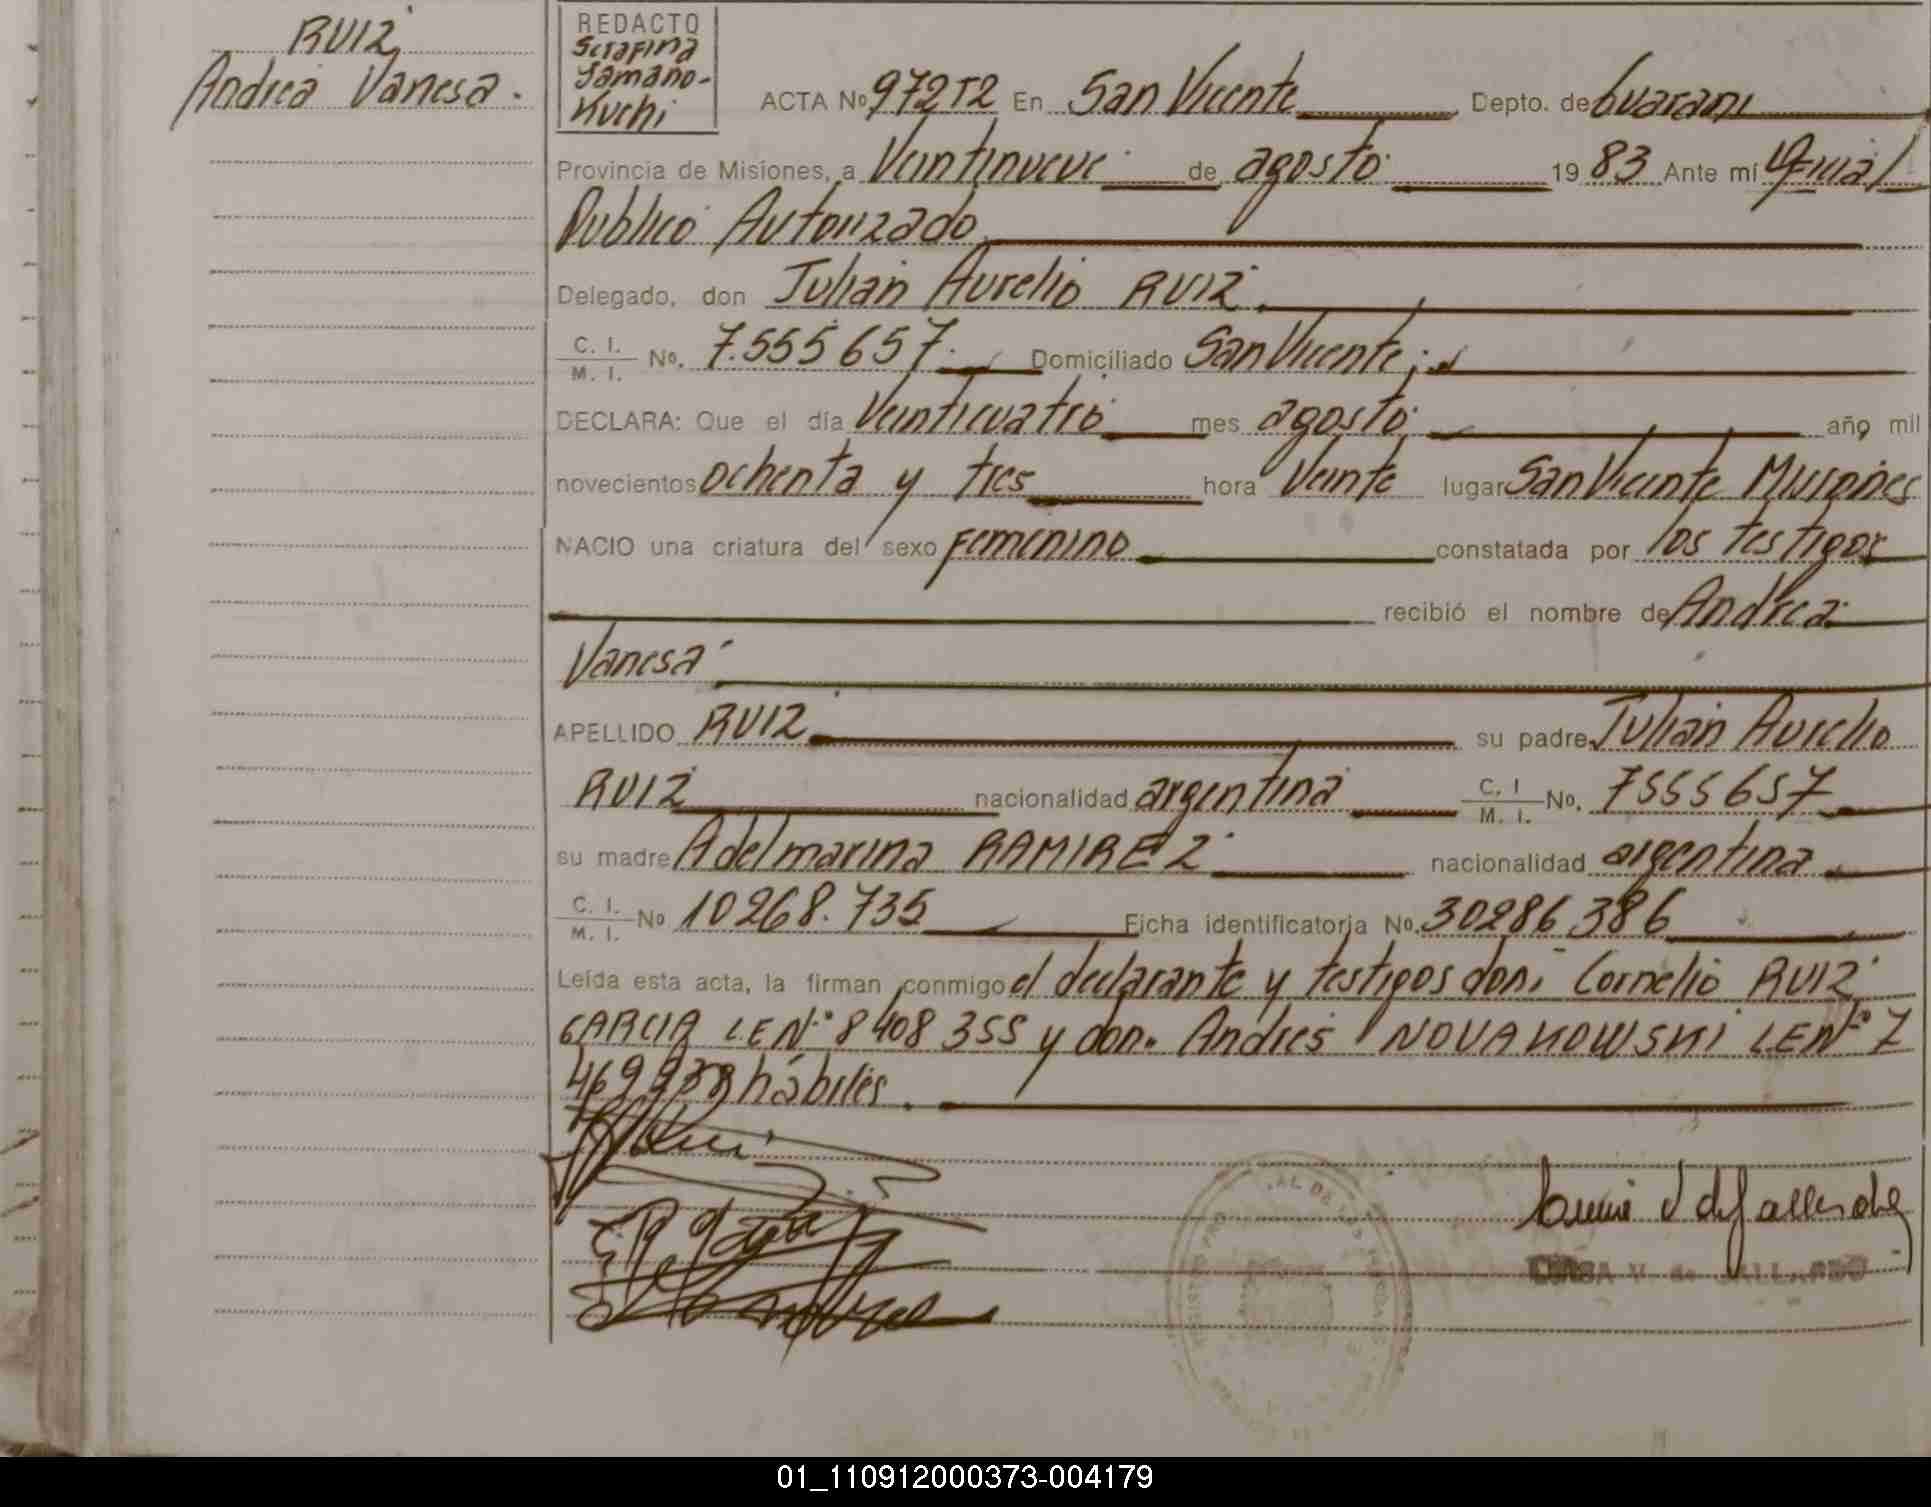 RUIZ
Andrea Vanesa.
REDACTO
Serafina
Yamaño-
Kuchi
ACTA Nº 972T2 En San Vicente Depto. de Guarani
Provincia de Misiones, a Veintinueve de agosto 1983 Ante mí Oficial
Publico Autorizado
Delegado, don Julian Aurelio RUIZ
C. I.
M. I. No. 7.555657. Domiciliado San Vicente;
DECLARA: Que el día Veinticuatro mes agosto año mil
novecientos ochenta y tres hora Veinte lugar San Vicente Misiones
NACIO una criatura del sexo femenino constatada por los testigos
recibió el nombre de Andrea
Vanesa
APELLIDO RUIZ su padre Julian Aurelio
RUIZ nacionalidad argentina C. I
M. I. No. 7555657
su madre Adelmarina RAMIREZ nacionalidad argentina
C. I.
M. I. No 10268.735 Ficha identificatoria No. 30286386
Leída esta acta, la firman conmigo el declarante y testigos don: Cornelio RUIZ
GARCIA L.E Nº 8408355 y don. Andres NOVAKOWSKI L.E Nº 7
469938 hábiles.
01_110912000373-004179